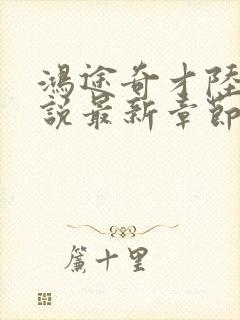 鴻途奇才陸
說最新章節
簾十里